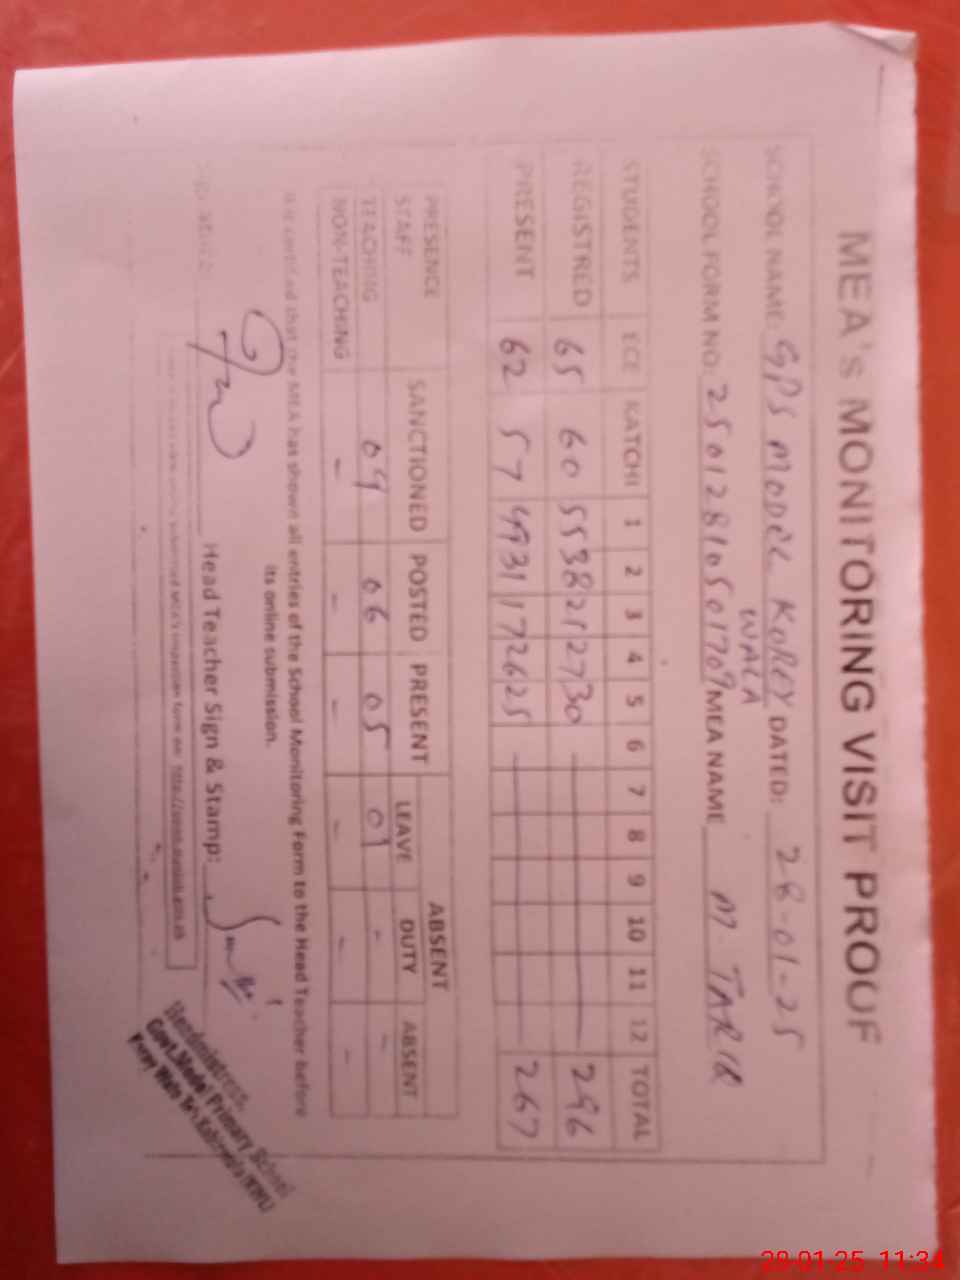 MEA's MONITORING VISIT PROOF
SCHOOL NAME: GPS MODEL KOREY WALA DATED: 28-01-25
SCHOOL FORM NO: 25012810501709 MEA NAME M. TARIQ
STUDENTS ECE KATCHI 1 2 3 4 5 6 7 8 9 10 11 12 TOTAL
REGISTRED 65 60 55 38 21 27 30 296
PRESENT 62 57 49 31 17 26 25 267
PRESENCE ABSENT
STAFF SANCTIONED POSTED PRESENT LEAVE DUTY ABSENT
TEACHING 09 06 05 01 - -
NON-TEACHING - - - - - -
It is certified that the MEA has shown all entries of the School Monitoring Form to the Head Teacher before
its online submission.
Head Teacher Sign & Stamp:
Headmistress
Govt. Model Primary School
29-01-25 11:34